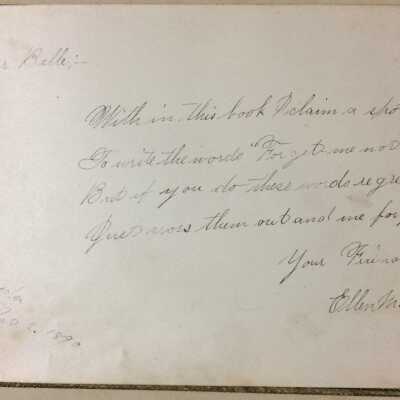 r Belle;-
With in this book I claim a spo
To write the words "Forget me not
But if you do these words regre
cross them out and me for
Your Frien
Ellen M.
1890